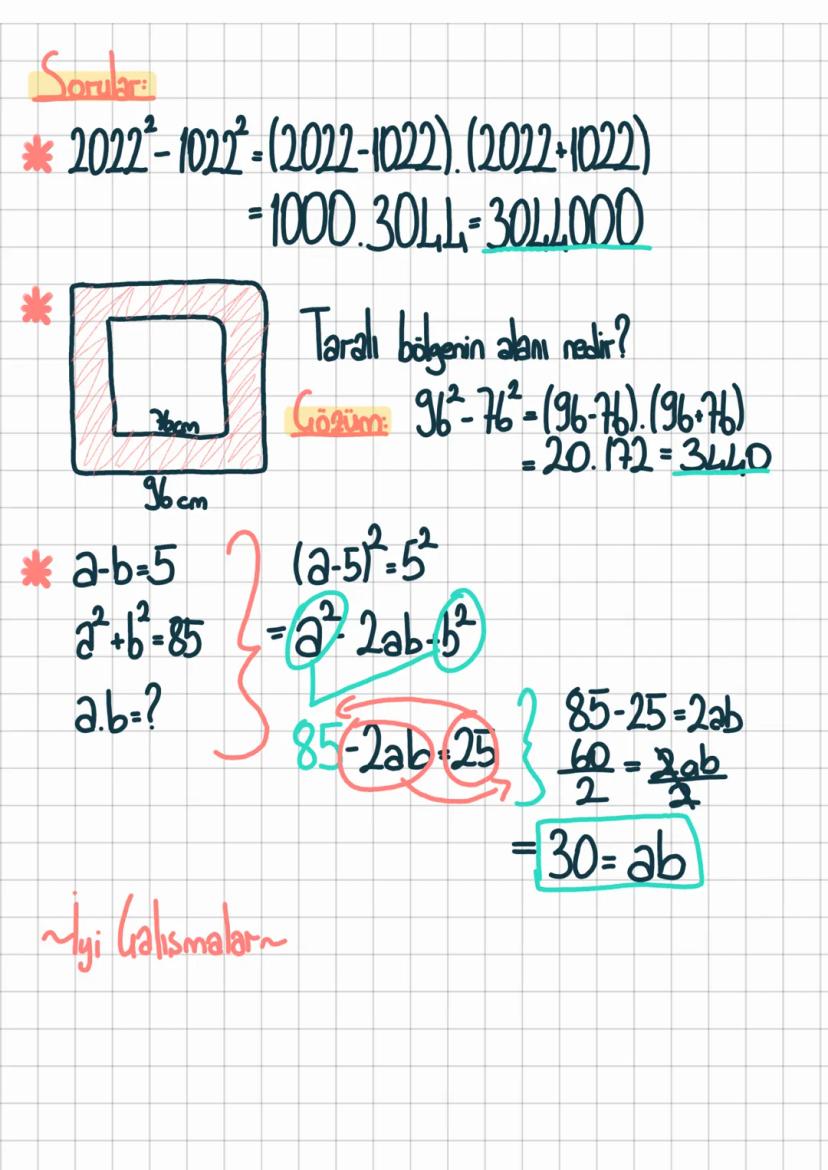 Sorular:
2022² - 1022² = (2022-1022).(2022+1022)
= 1000.3044 = 3044000
76cm
96 cm
Taralı bölgenin alanı nedir?
Çözüm: 96² - 76² = (96-76).(96+76)
= 20.172 = 3440
a-b=5
a²+b²=85
a.b=?
(a-5)²=5²
= a² - 2ab + b²
85 - 2ab = 25
85-25=2ab
60/2 = 2ab/2
= 30 = ab
~İyi Çalışmalar~